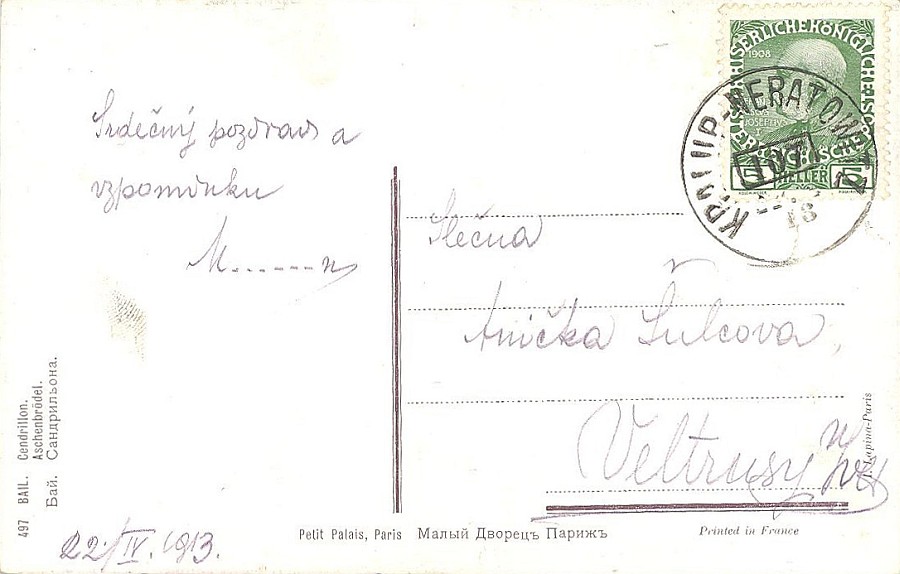 Srdečný pozdrav a
vzpomínku
M.......n
22./IV. 1913.
497 BAIL. Cendrillon.
Aschenbrödel.
Бай. Сандрильона.
Petit Palais, Paris Малый Дворецъ Парижъ
Printed in France
I. Lapina-Paris
Slečna
Anička Šulcova,
Veltrusy
KAISERLICHE KÖNIGLICHE ÖSTERREICHISCHE
1908
5 HELLER 5
KRALUP-NERATOWITZ
107
13